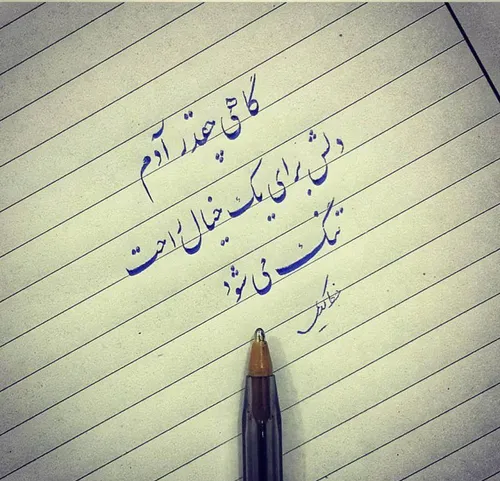 گاهی چقدر آدم
دلش برای یک خیال راحت
تنگ می شود